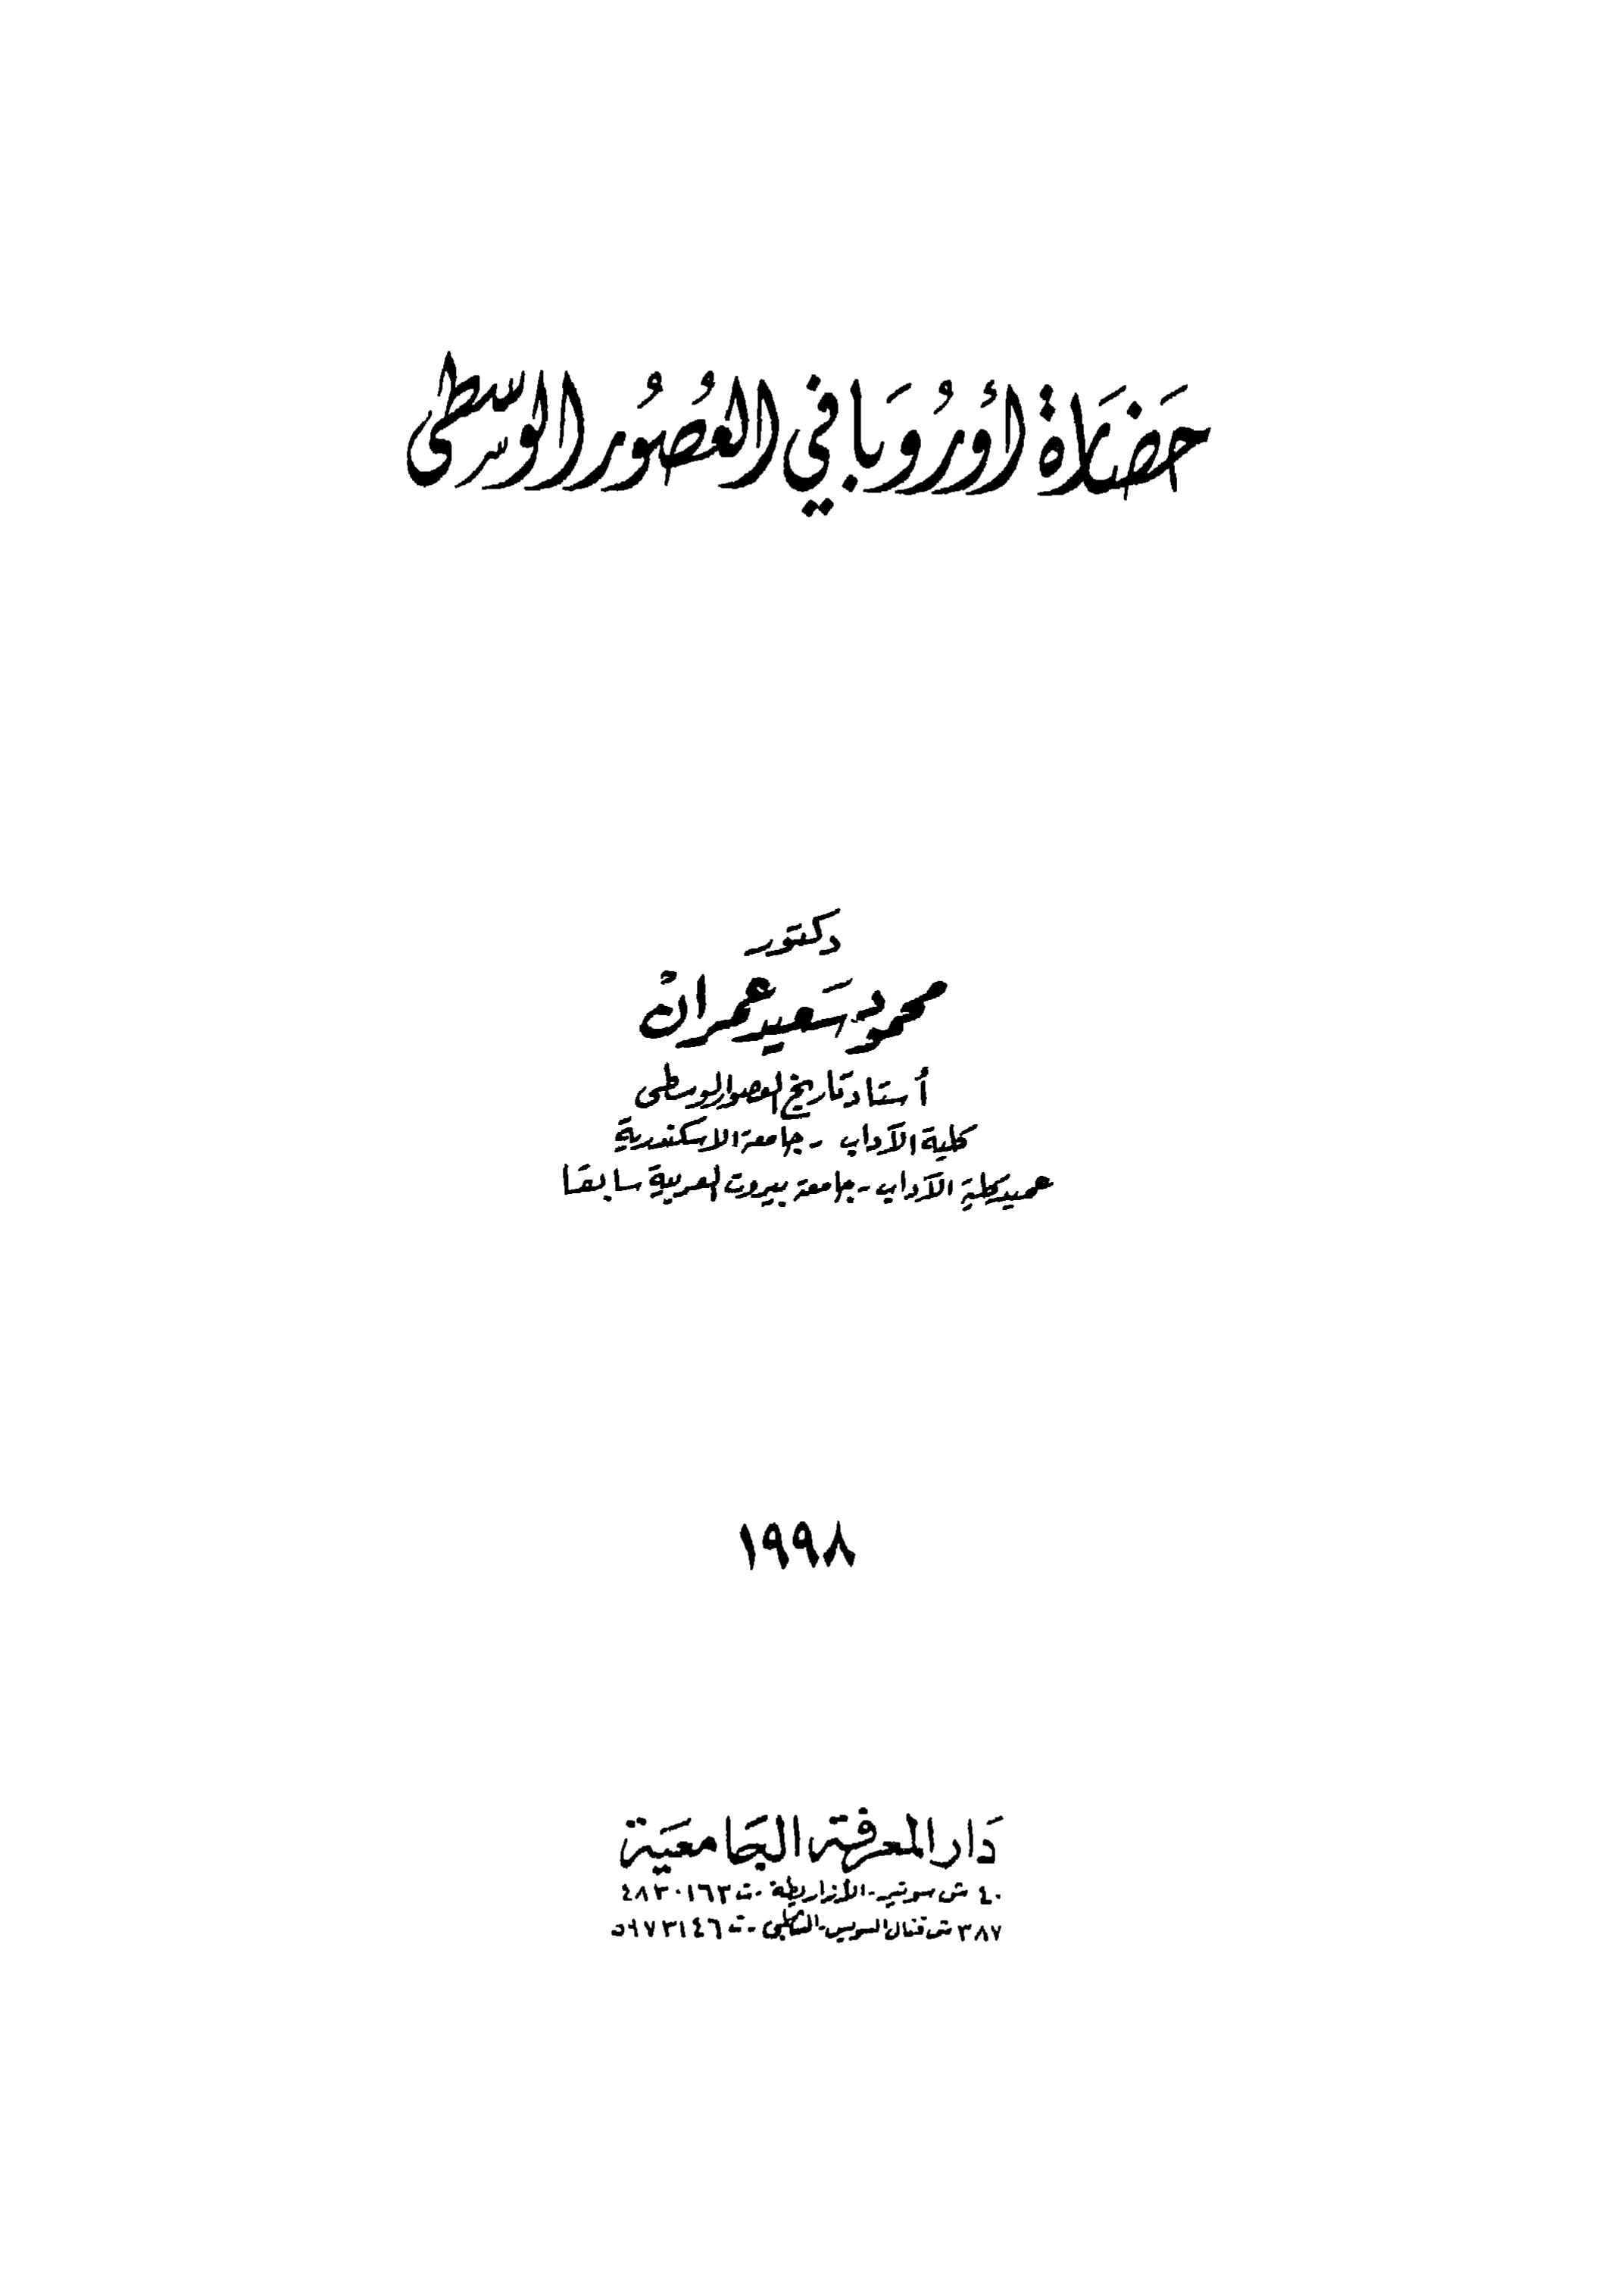 حَضَارة أوُرُوَبا في العُصُور الوسّطى
دكتور
محمود سَعيد عمران
أستاذ تاريخ العصور الوسطى
كلية الآداب - جامعة الاسكندرية
عميد كلية الآداب - جامعة بيروت العربية سابقا
١٩٩٨
دَار المعرفة الجَامعيَة
٤٠ ش سوتير - الأزاريطة - ت ٤٨٣٠١٦٣
٣٨٧ ش قنال السويس - الشاطبى - ت ٥٩٧٣١٤٦